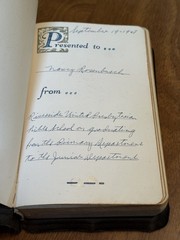 September 19-1961
Presented to...
Nancy Rosenbrach
from...
Riverside United Presbyterian
Bible School on graduating
from the Primary Department
to the Junior Department